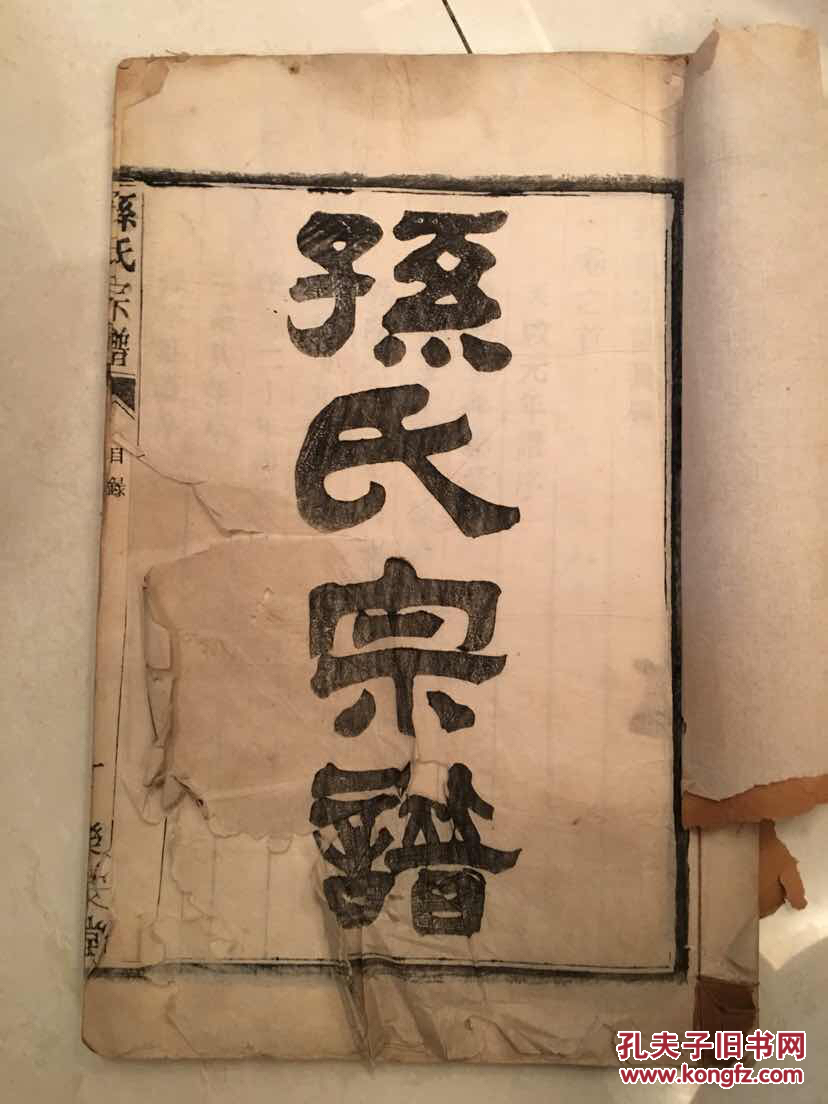 孫氏宗譜
孫氏宗譜
目錄
一
堂
孔夫子旧书网
www.kongfz.com